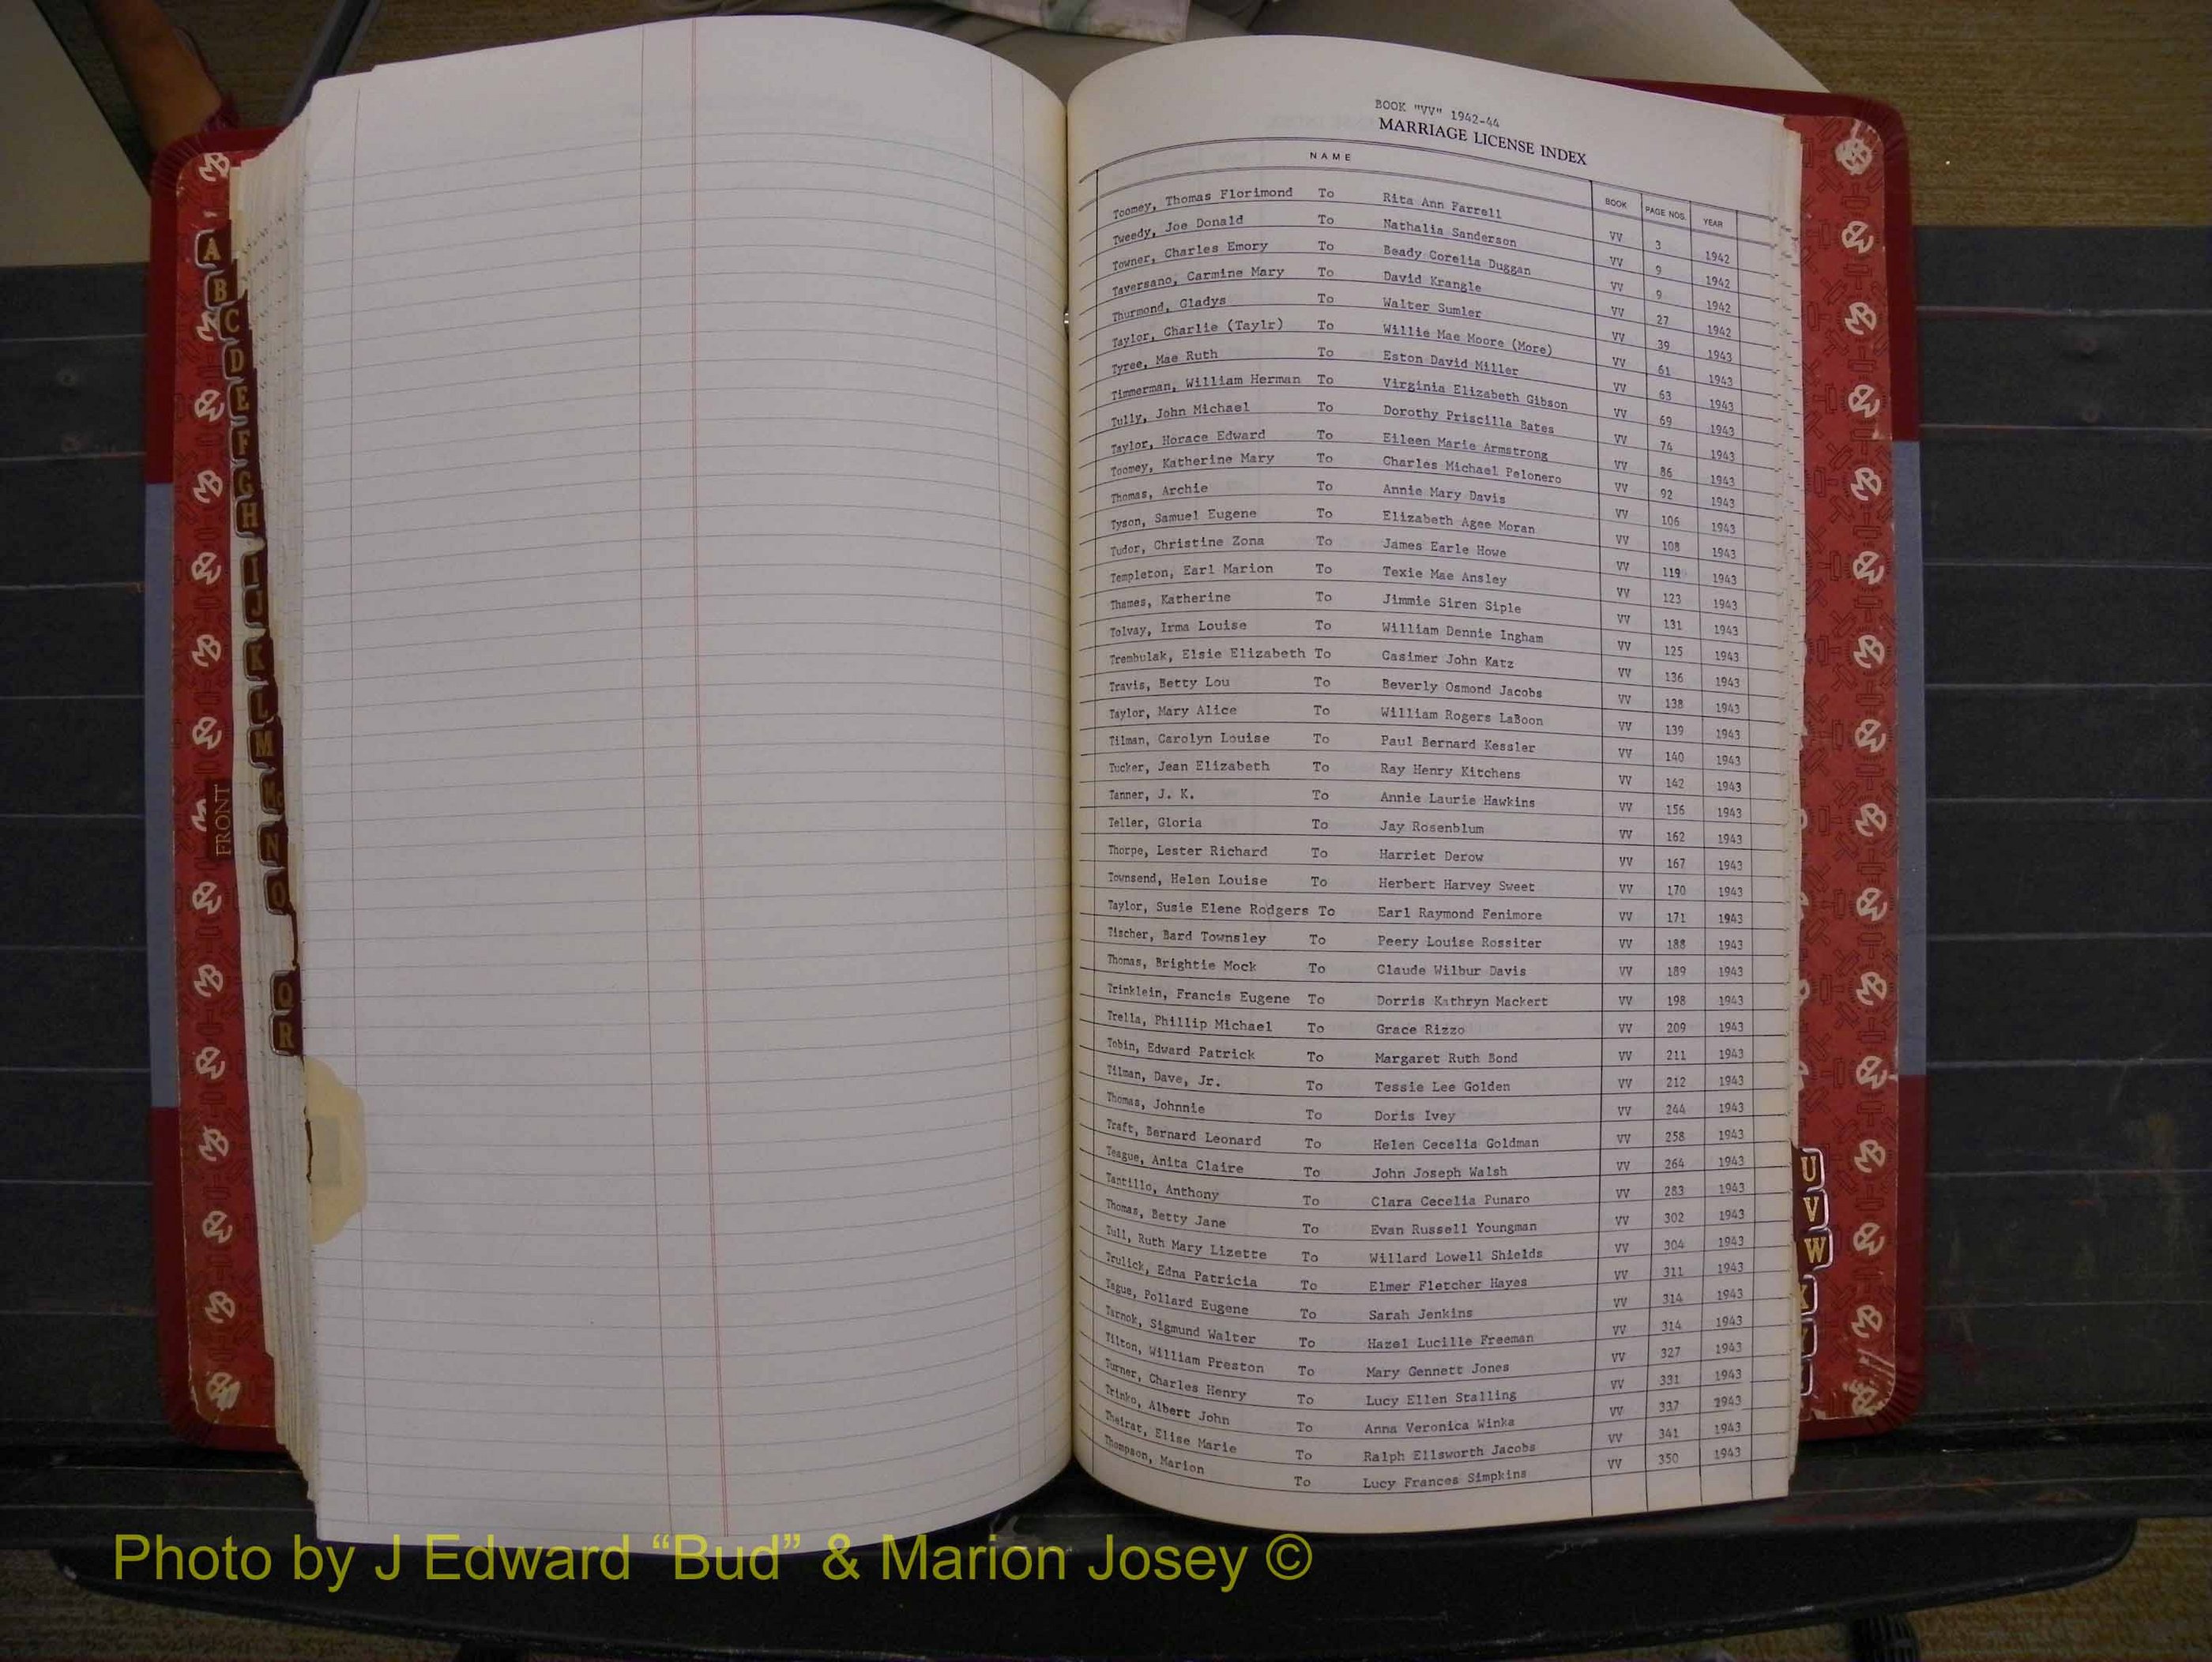 BOOK "VV" 1942-44
MARRIAGE LICENSE INDEX
NAME BOOK PAGE NOS. YEAR
Toomey, Thomas Florimond To Rita Ann Farrell VV 3 1942
Tweedy, Joe Donald To Nathalia Sanderson VV 9 1942
Towner, Charles Emory To Beady Corelia Duggan VV 9 1942
Taversano, Carmine Mary To David Krangle VV 27 1942
Thurmond, Gladys To Walter Sumler VV 39 1943
Taylor, Charlie (Taylr) To Willie Mae Moore (More) VV 61 1943
Tyree, Mae Ruth To Eston David Miller VV 63 1943
Timmerman, William Herman To Virginia Elizabeth Gibson VV 69 1943
Tully, John Michael To Dorothy Priscilla Bates VV 74 1943
Taylor, Horace Edward To Eileen Marie Armstrong VV 86 1943
Toomey, Katherine Mary To Charles Michael Pelonero VV 92 1943
Thomas, Archie To Annie Mary Davis VV 106 1943
Tyson, Samuel Eugene To Elizabeth Agee Moran VV 108 1943
Tudor, Christine Zona To James Earle Howe VV 119 1943
Templeton, Earl Marion To Texie Mae Ansley VV 123 1943
Thames, Katherine To Jimmie Siren Siple VV 131 1943
Tolvay, Irma Louise To William Dennie Ingham VV 125 1943
Trembulak, Elsie Elizabeth To Casimer John Katz VV 136 1943
Travis, Betty Lou To Beverly Osmond Jacobs VV 138 1943
Taylor, Mary Alice To William Rogers LaBoon VV 139 1943
Tilman, Carolyn Louise To Paul Bernard Kessler VV 140 1943
Tucker, Jean Elizabeth To Ray Henry Kitchens VV 142 1943
Tanner, J. K. To Annie Laurie Hawkins VV 156 1943
Teller, Gloria To Jay Rosenblum VV 162 1943
Thorpe, Lester Richard To Harriet Derow VV 167 1943
Townsend, Helen Louise To Herbert Harvey Sweet VV 170 1943
Taylor, Susie Elene Rodgers To Earl Raymond Fenimore VV 171 1943
Tischer, Bard Townsley To Peery Louise Rossiter VV 188 1943
Thomas, Brightie Mock To Claude Wilbur Davis VV 189 1943
Trinklein, Francis Eugene To Dorris Kathryn Mackert VV 198 1943
Trella, Phillip Michael To Grace Rizzo VV 209 1943
Tobin, Edward Patrick To Margaret Ruth Bond VV 211 1943
Tilman, Dave, Jr. To Tessie Lee Golden VV 212 1943
Thomas, Johnnie To Doris Ivey VV 244 1943
Traft, Bernard Leonard To Helen Cecelia Goldman VV 258 1943
Teague, Anita Claire To John Joseph Walsh VV 264 1943
Tantillo, Anthony To Clara Cecelia Punaro VV 283 1943
Thomas, Betty Jane To Evan Russell Youngman VV 302 1943
Tull, Ruth Mary Lizette To Willard Lowell Shields VV 304 1943
Trulick, Edna Patricia To Elmer Fletcher Hayes VV 311 1943
Tague, Pollard Eugene To Sarah Jenkins VV 314 1943
Tarnok, Sigmund Walter To Hazel Lucille Freeman VV 314 1943
Tilton, William Preston To Mary Gennett Jones VV 327 1943
Turner, Charles Henry To Lucy Ellen Stalling VV 331 1943
Trinko, Albert John To Anna Veronica Winka VV 337 1943
Theirat, Elise Marie To Ralph Ellsworth Jacobs VV 341 1943
Thompson, Marion To Lucy Frances Simpkins VV 350 1943
A
B
C
D
E
F
G
H
I
J
K
L
M
Mc
N
O
Q
R
FRONT
U
V
W
Photo by J Edward “Bud” & Marion Josey ©